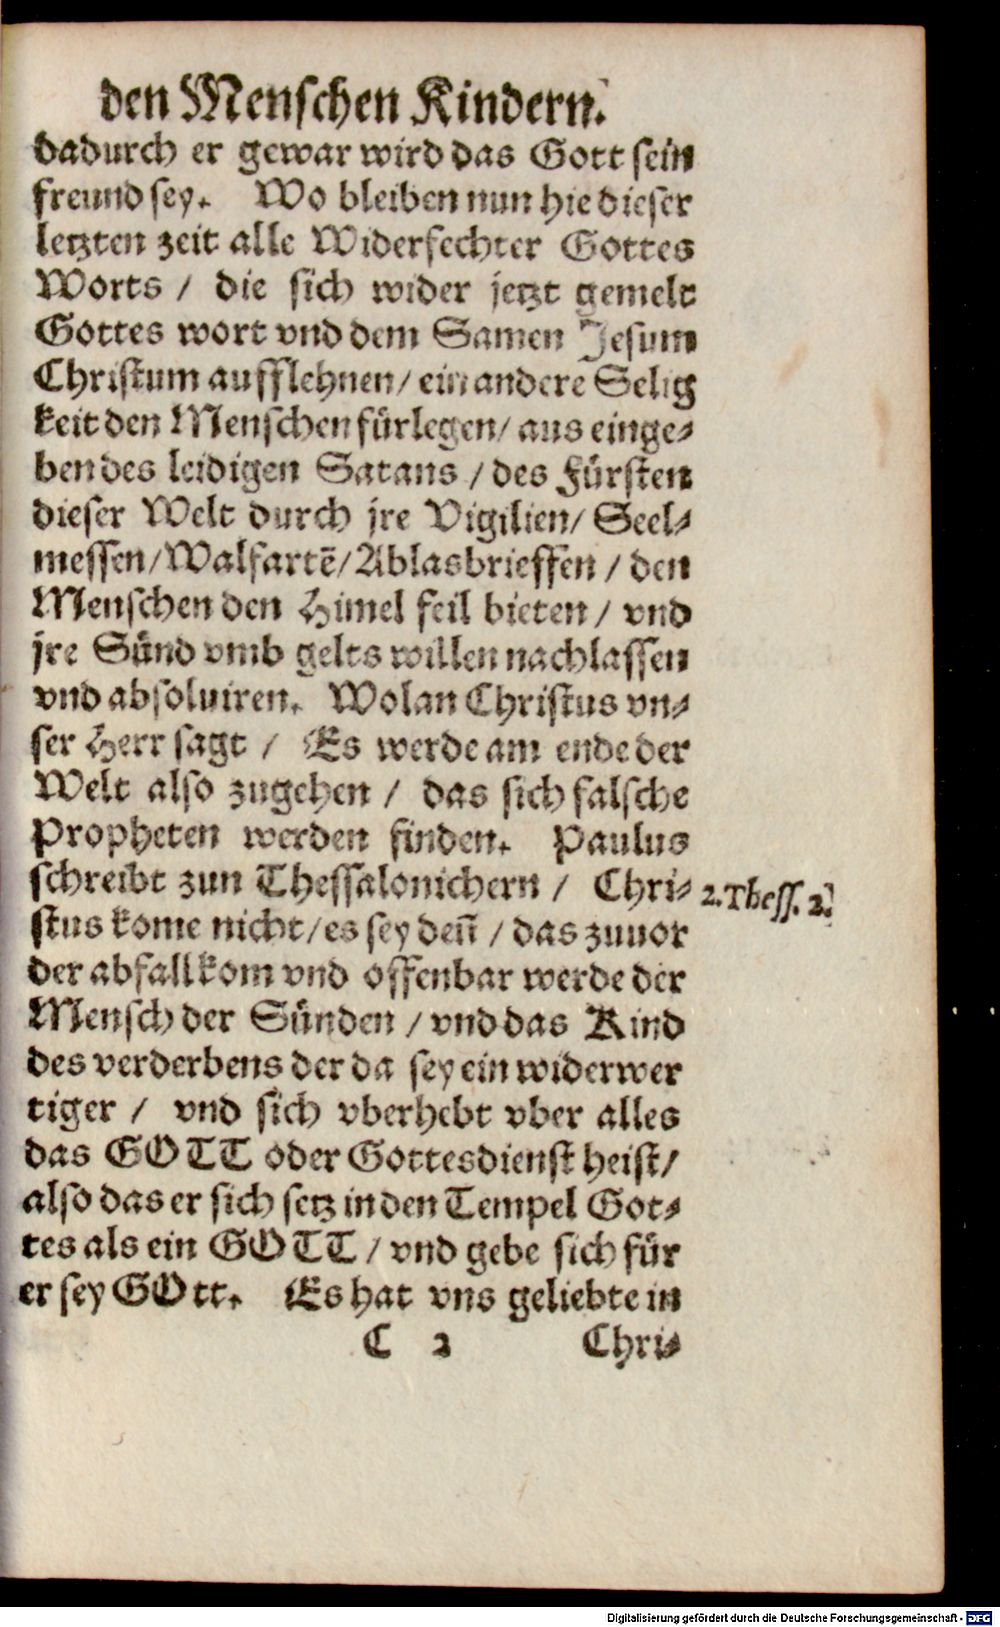 den Menschen Kindern.
dadurch er gewar wird das Gott sein
freund sey. Wo bleiben nun hie dieser
letzten zeit alle Widerfechter Gottes
Worts / die sich wider jetzt gemelt
Gottes wort vnd dem Samen Jesum
Christum aufflehnen / ein andere Selig
keit den Menschen fürlegen / aus einge-
ben des leidigen Satans / des Fürsten
dieser Welt durch jre Vigilien / Seel-
messen / Walfartē / Ablasbrieffen / den
Menschen den Himel feil bieten / vnd
jre Sünd vmb gelts willen nachlassen
vnd absoluiren. Wolan Christus vn-
ser Herr sagt / Es werde am ende der
Welt also zugehen / das sich falsche
Propheten werden finden. Paulus
schreibt zun Thessalonichern / Chri-
2. Thess. 2.
stus kome nicht / es sey deñ / das zuuor
der abfall kom vnd offenbar werde der
Mensch der Sünden / vnd das Kind
des verderbens der da sey ein widerwer
tiger / vnd sich vberhebt vber alles
das GOTT oder Gottesdienst heist /
also das er sich setz in den Tempel Got-
tes als ein GOTT / vnd gebe sich für
er sey GOtt. Es hat vns geliebte in
C 2 Chri-
Digitalisierung gefördert durch die Deutsche Forschungsgemeinschaft - DFG